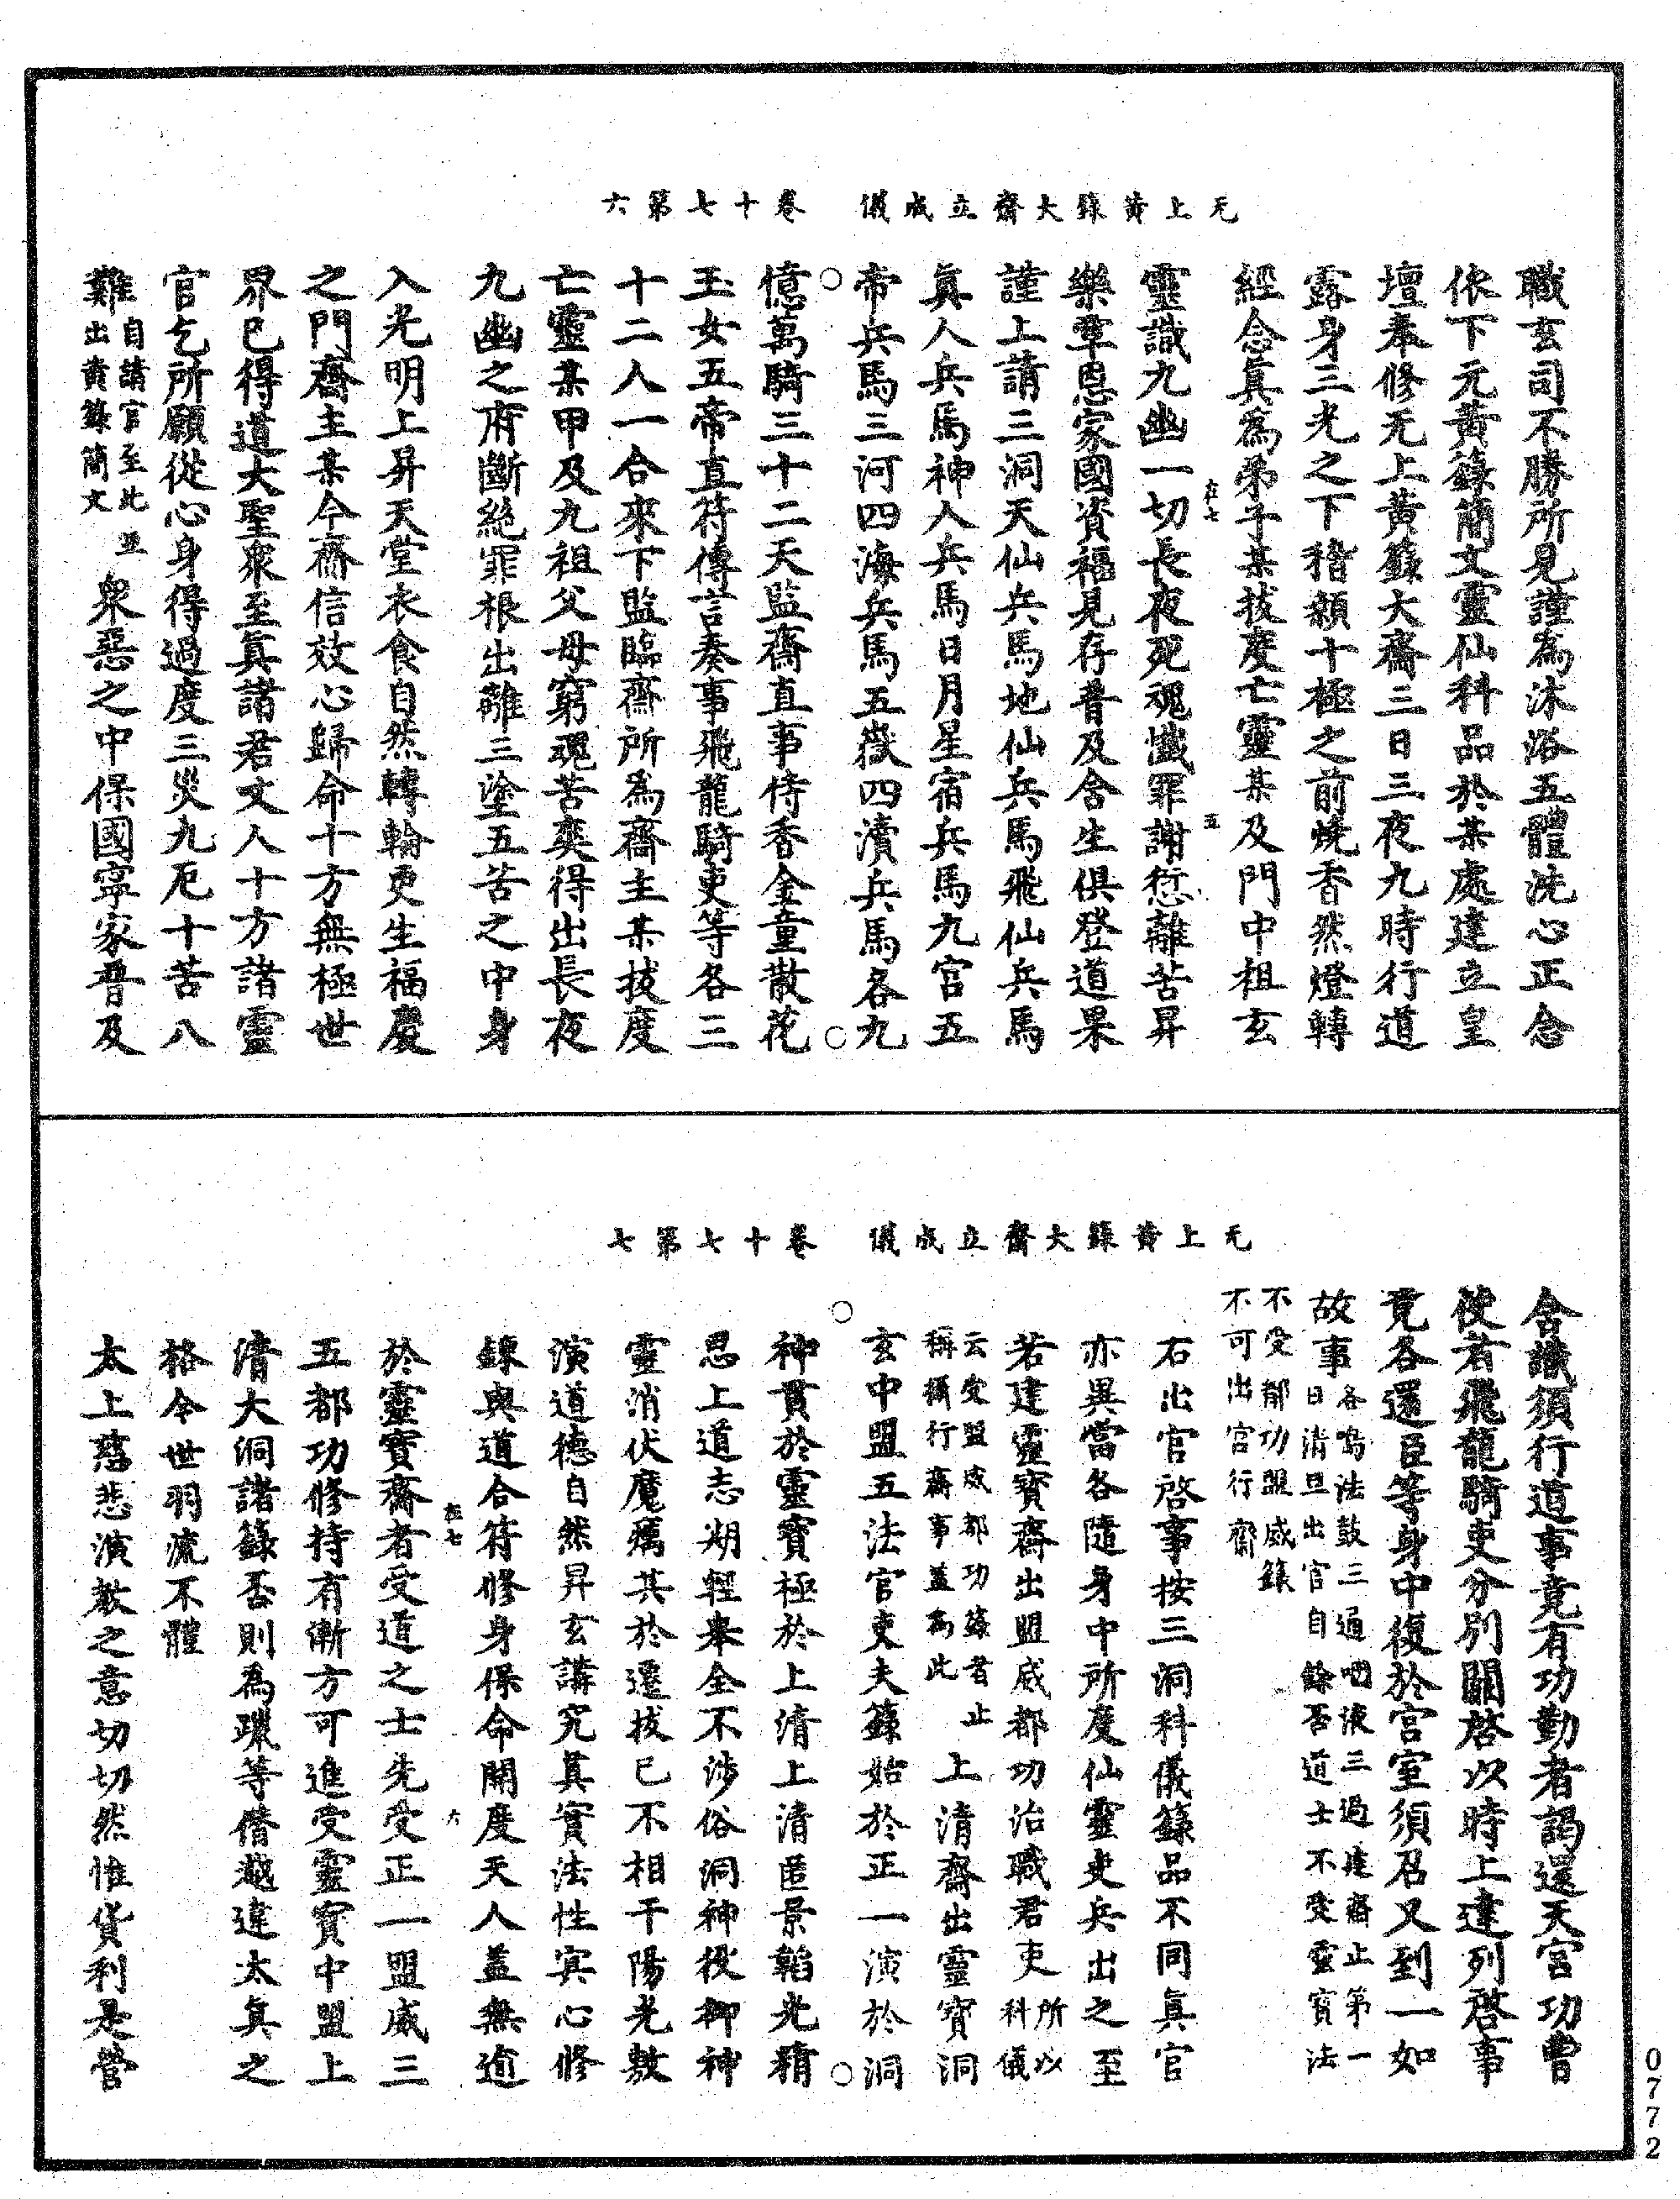 无上黃籙大齋立成儀　卷十七第六
職玄司不勝所見謹為沐浴五體洗心正念
依下元黃籙簡文靈仙科品於某處建立皇
壇奉修无上黃籙大齋三日三夜九時行道
露身三光之下稽顙十極之前燒香然燈轉
經念眞為弟子某拔度亡靈某及門中祖玄
在七　五
靈識九幽一切長夜死魂懺罪謝愆離苦昇
樂覃恩家國資福見存普及含生俱登道果
謹上請三洞天仙兵馬地仙兵馬飛仙兵馬
眞人兵馬神人兵馬日月星宿兵馬九宮五
帝兵馬三河四海兵馬五嶽四瀆兵馬各九
億萬騎三十二天監齋直事侍香金童散花
玉女五帝直符傳言奏事飛龍騎吏等各三
十二人一合來下監臨齋所為齋主某拔度
亡靈某甲及九祖父母窮魂苦爽得出長夜
九幽之府斷絕罪根出離三塗五苦之中身
入光明上昇天堂衣食自然轉輪更生福慶
之門齋主某今齋信效心歸命十方無極世
界已得道大聖衆至眞諸君丈人十方諸靈
官乞所願從心身得過度三災九厄十苦八
難自請官至此並出黃籙簡文衆惡之中保國寧家普及
无上黃籙大齋立成儀　卷十七第七
含識須行道事竟有功勤者謁還天宮功曹
使者飛龍騎吏分別關啓以時上達列啓事
竟各還臣等身中復於宮室須召又到一如
故事各鳴法鼓三通咽液三過建齋止第一日清旦出官自餘否道士不受靈寶法
不受都功盟威籙不可出官行齋
右出官啓事按三洞科儀籙品不同眞官
亦異當各隨身中所度仙靈吏兵出之至
若建靈寶齋出盟威都功治職君吏所以科儀
云受盟威都功籙者止稱攝行齋事蓋為此上清齋出靈寶洞
玄中盟五法官吏夫籙始於正一演於洞
神貫於靈寶極於上清上清匿景韜光精
思上道志期輕舉全不涉俗洞神役御神
靈消伏魔癘其於遷拔已不相干陽光敷
演道德自然昇玄講究眞實法性冥心修
鍊與道合符修身保命開度天人蓋無逾
在七　六
於靈寶齋者受道之士先受正一盟威三
五都功修持有漸方可進受靈寶中盟上
清大洞諸籙否則為躐等僭越違太眞之
格今世羽流不體
太上慈悲演教之意切切然惟貨利是營
0772